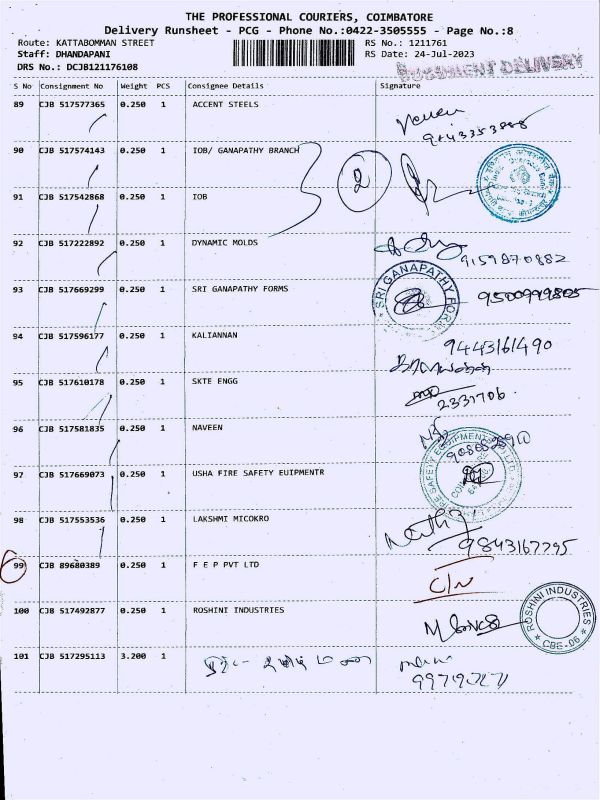 THE PROFESSIONAL COURIERS, COIMBATORE
Delivery Runsheet - PCG - Phone No.:0422-3505555 - Page No.:8
Route: KATTABOMMAN STREET RS No.: 1211761
Staff: DHANDAPANI RS Date: 24-Jul-2023
DRS No.: DCJB121176108
DOCUMENT DELIVERY
S No Consignment No Weight PCS Consignee Details Signature
89 CJB 517577365 0.250 1 ACCENT STEELS
90 CJB 517574143 0.250 1 IOB/ GANAPATHY BRANCH
2
91 CJB 517542868 0.250 1 IOB
92 CJB 517222892 0.250 1 DYNAMIC MOLDS
9159870882
93 CJB 517669299 0.250 1 SRI GANAPATHY FORMS
SRI GANAPATHY FORM
94 CJB 517596177 0.250 1 KALIANNAN
9443161490
95 CJB 517610178 0.250 1 SKTE ENGG
2331706
96 CJB 517581835 0.250 1 NAVEEN
97 CJB 517669073 0.250 1 USHA FIRE SAFETY EUIPMENTR
98 CJB 517553536 0.250 1 LAKSHMI MICOKRO
9843167795
99 CJB 89680389 0.250 1 F E P PVT LTD
100 CJB 517492877 0.250 1 ROSHINI INDUSTRIES
ROSHINI INDUSTRIES
CBE-06
101 CJB 517295113 3.200 1